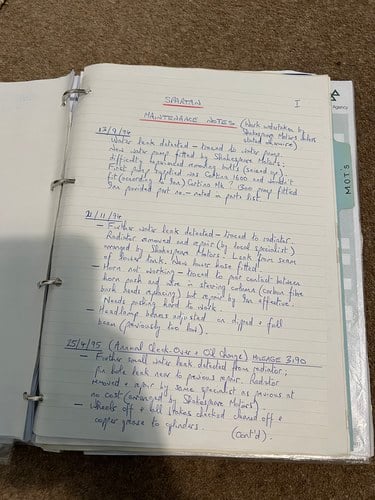 SPARTAN I
MAINTENANCE NOTES (Work undertaken by
Shakespeare Motors unless
stated otherwise)
13/9/94
Water leak detected – traced to water pump.
New water pump fitted by Shakespeare Motors:
difficulty experienced removing bolts (seized up).
First pump supplied was Cortina 1600 and wouldn't
fit (.). Cortina Mk ? 2000 pump fitted
part no. – noted in parts list.
21/11/94
– Further water leak detected – traced to radiator.
Radiator removed and repair (by local specialist)
arranged by Shakespeare Motors. Leak from seam
of lower tank. New lower hose fitted.
– Horn not working – traced to poor contact between
horn push and wire in steering column (carbon fibre
bush needs replacing) but repair by effective.
Needs pushing hard to work.
– Headlamp beams adjusted on dipped + full
beam (previously too low).
25/4/95 (Annual Check-Over + Oil Change) MILEAGE 3190
– Further small water leak detected from radiator;
pin hole leak near to previous repair. Radiator
removed + repair by same specialist as previous at
no cost (arranged by Shakespeare Motors).
– Wheels off + all brakes checked cleaned off +
copper grease to cylinders.
(Cont'd).
Agency
MOTS